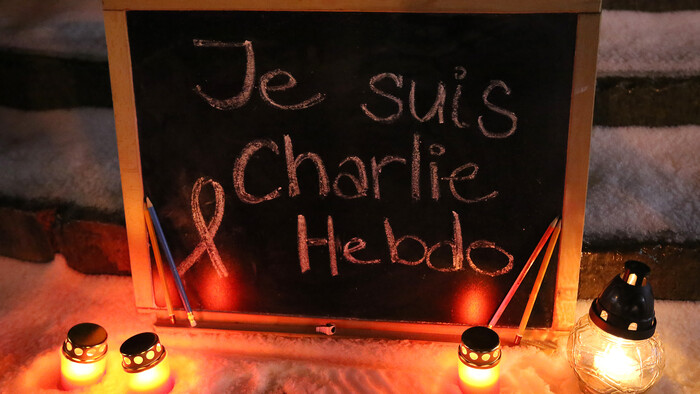 Je suis
Charlie
Hebdo